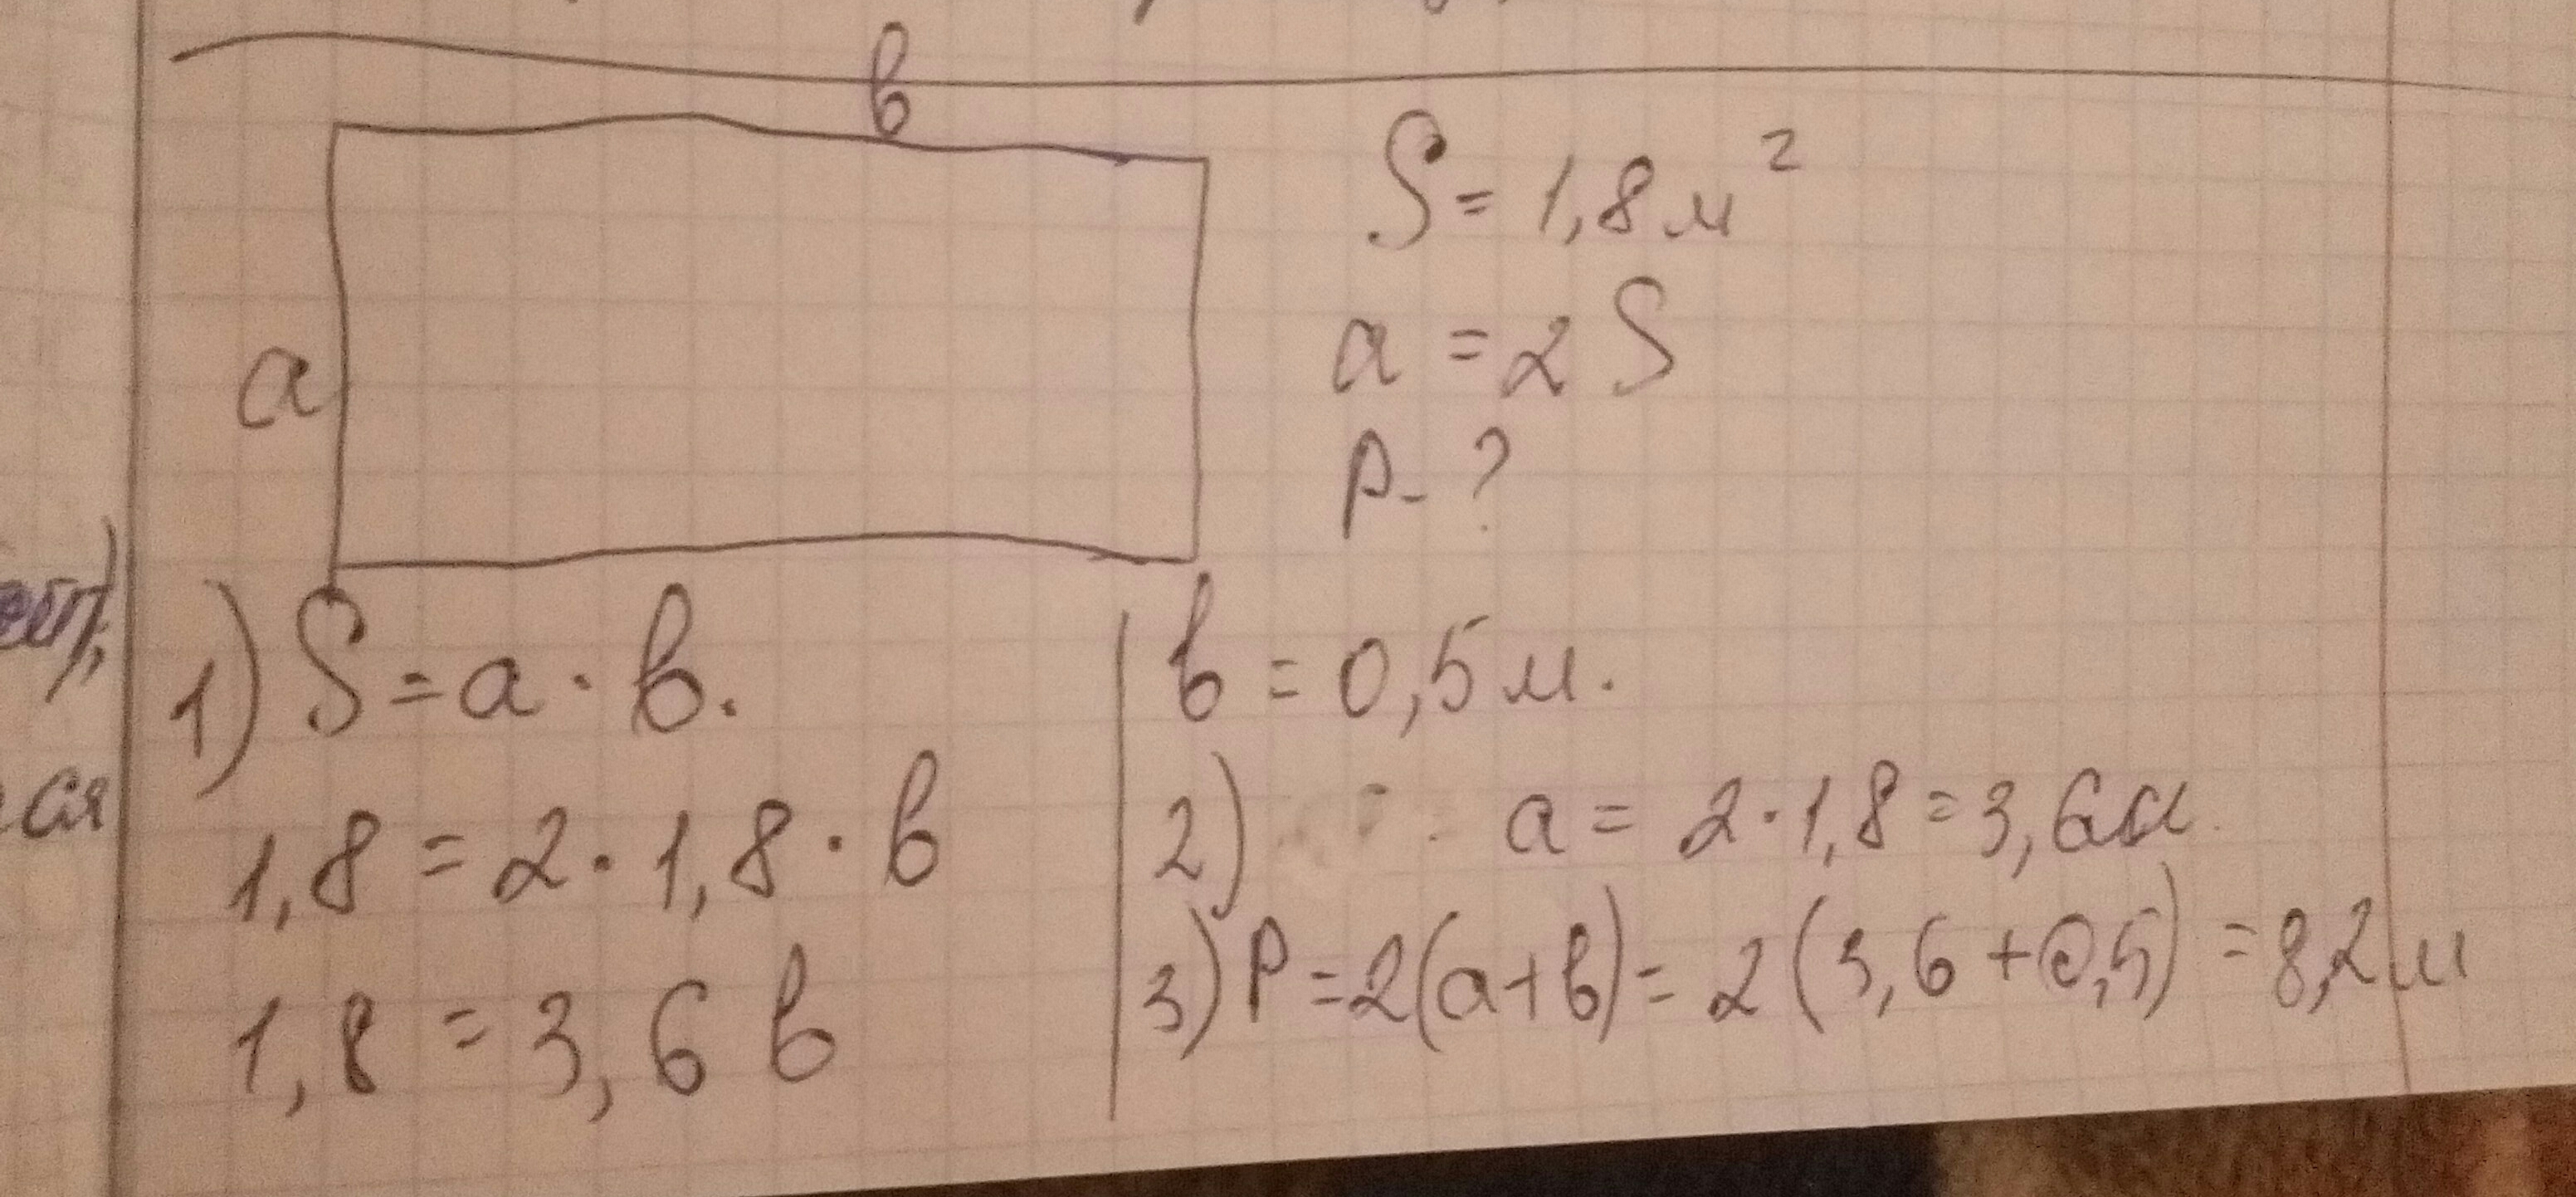 в
S = 1,8 м²
a = 2 S
a
P - ?
1) S = a · в.
1,8 = 2 · 1,8 · в
1,8 = 3,6 в
в = 0,5 м.
2) a = 2 · 1,8 = 3,6 м.
3) P = 2(a+в) = 2 (3,6 + 0,5) = 8,2 м
ся